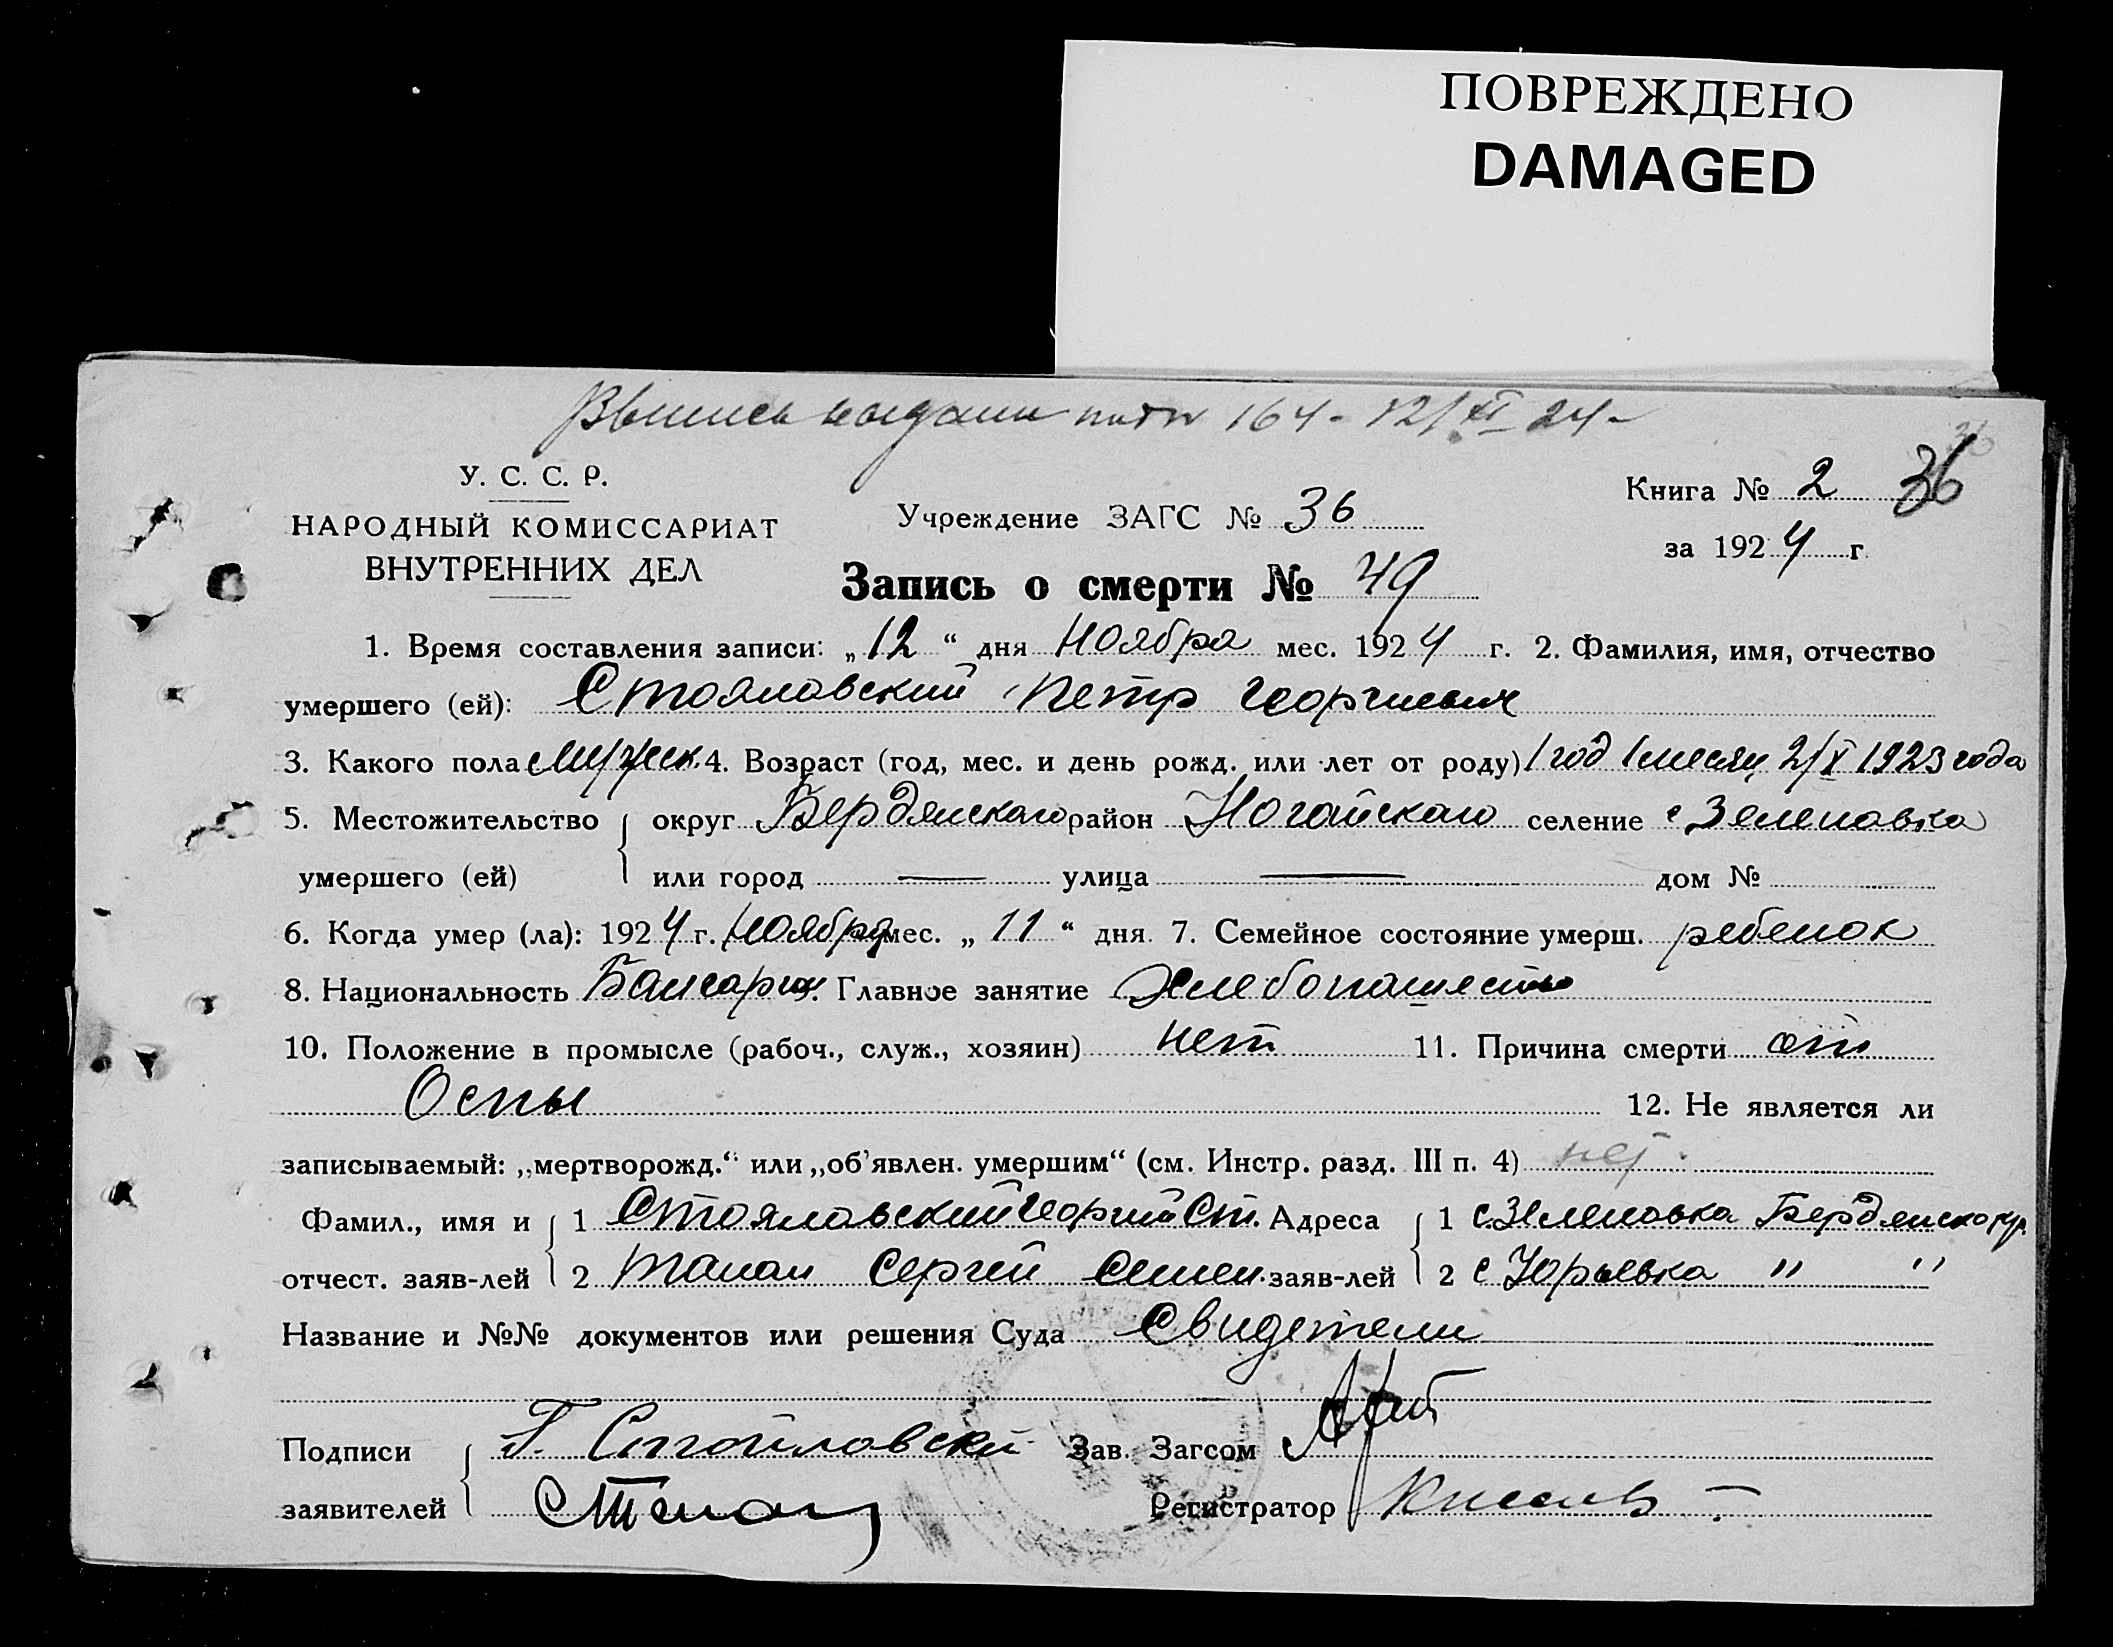 ПОВРЕЖДЕНО
DAMAGED
164 - 12/XI 24 -
У. С. С. Р.
НАРОДНЫЙ КОМИССАРИАТ
ВНУТРЕННИХ ДЕЛ
Учреждение ЗАГС № 36
Книга № 2 36
за 1924 г.
Запись о смерти № 49
1. Время составления записи: „12“ дня Ноября мес. 1924 г. 2. Фамилия, имя, отчество
умершего (ей): Стояловский Петр Георгиевич
3. Какого пола Мужеск. 4. Возраст (год, мес. и день рожд. или лет от роду) 1 год 1 месяц 2/X 1923 года
5. Местожительство округ Бердянскаго район Ногайскаго селение с Зеленовка
умершего (ей) или город — улица — дом №
6. Когда умер (ла): 1924 г. Ноября мес. „11“ дня. 7. Семейное состояние умерш. ребенок
8. Национальность Балгарин 9. Главное занятие Хлебопашество
10. Положение в промысле (рабоч., служ., хозяин) нет 11. Причина смерти от
Оспы 12. Не является ли
записываемый: „мертворожд.“ или „об’явлен. умершим“ (см. Инстр. разд. III п. 4) нет.
Фамил., имя и 1 Стояловский Георгий Ст. Адреса 1 с. Зеленовка Бердянско
отчест. заяв-лей 2 Сергей Семен. заяв-лей 2 с Юрьевка " "
Название и №№ документов или решения Суда Свидетели
Подписи Г. Стойловски Зав. Загсом
заявителей Регистратор